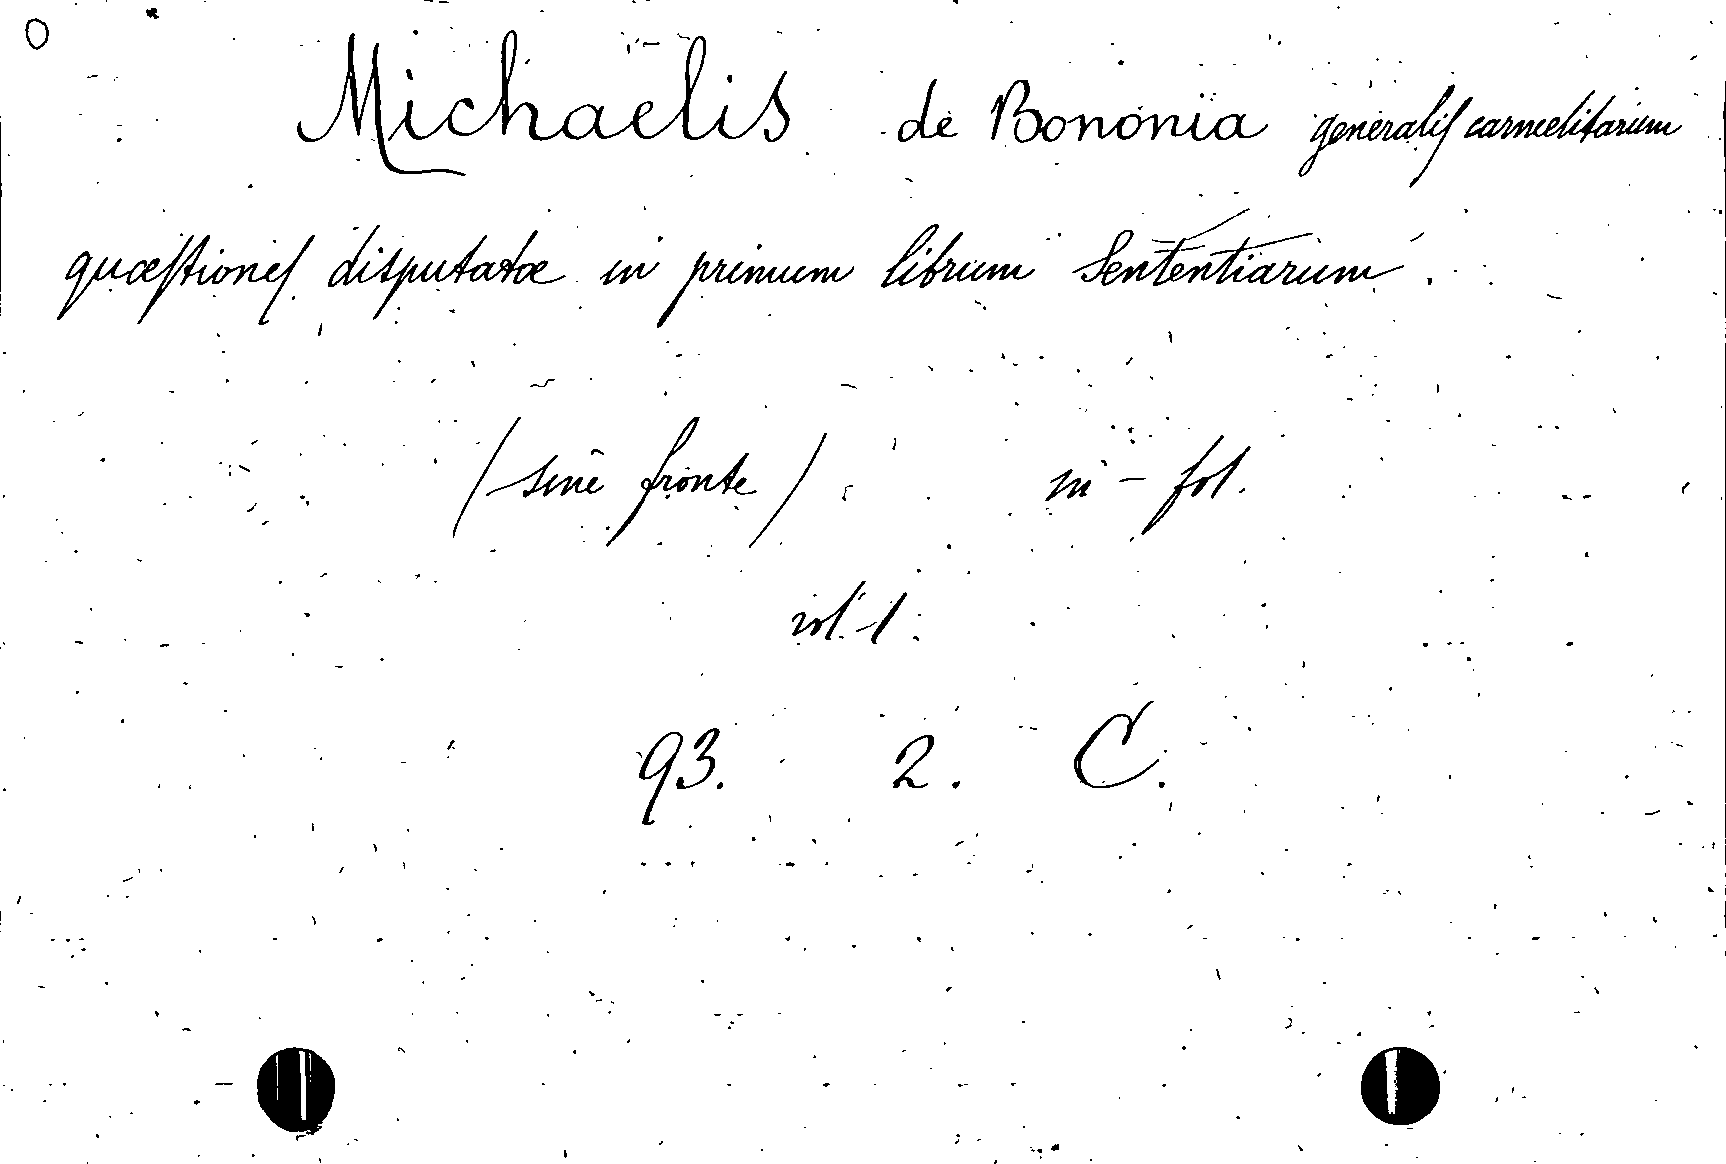 Michaelis de Bononia generalis carmelitarum
quæstiones disputatæ in primum librum Sententiarum.
(sine fronte) in-fol.
vol. 1.
93. 2. C.